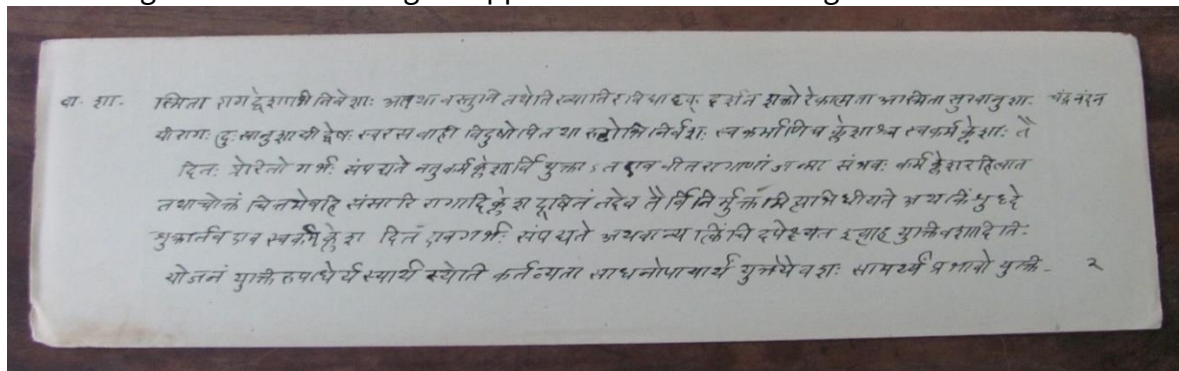 वा. शा. स्मिता राग द्वेशाभि निवेशाः अतथा वस्तुनि तथेति ख्याति र विद्या दृक् दर्शन शक्तो रेकात्मता आस्मिता सुखानुशा- चंद्र नंदन
यी रागः दुःखानुशायी द्वेषः स्वरस वाही विदुषोपि तथा रूढोभिनिर्वेशः स्वकर्माणि च क्लेशाश्च स्वकर्म क्लेशाः तै
दितः प्रेरितो गर्भः संपद्यते नतु कर्म क्लेशर्वि युक्ता ऽत एव वीतरागाणां जन्मा संभवः कर्म क्लेशरहित्वात
तथाचोक्तं चित्तमेवहि संसारि रागादि क्लेश दूषितं तदेव तै र्विनिर्मुक्त मित्यभिधीयते अथ किं शुध्दे
शुक्रार्तव एव स्वकर्म क्लेश दितं एव गर्भः संपद्यते अथवान्य त्किंचि दपेक्ष्यत इत्याह युक्तिवशादिति-
योजनं युक्ति कर्तव्यता साधनोपायार्थ सामर्थ्यं प्रभावो युक्ति- २